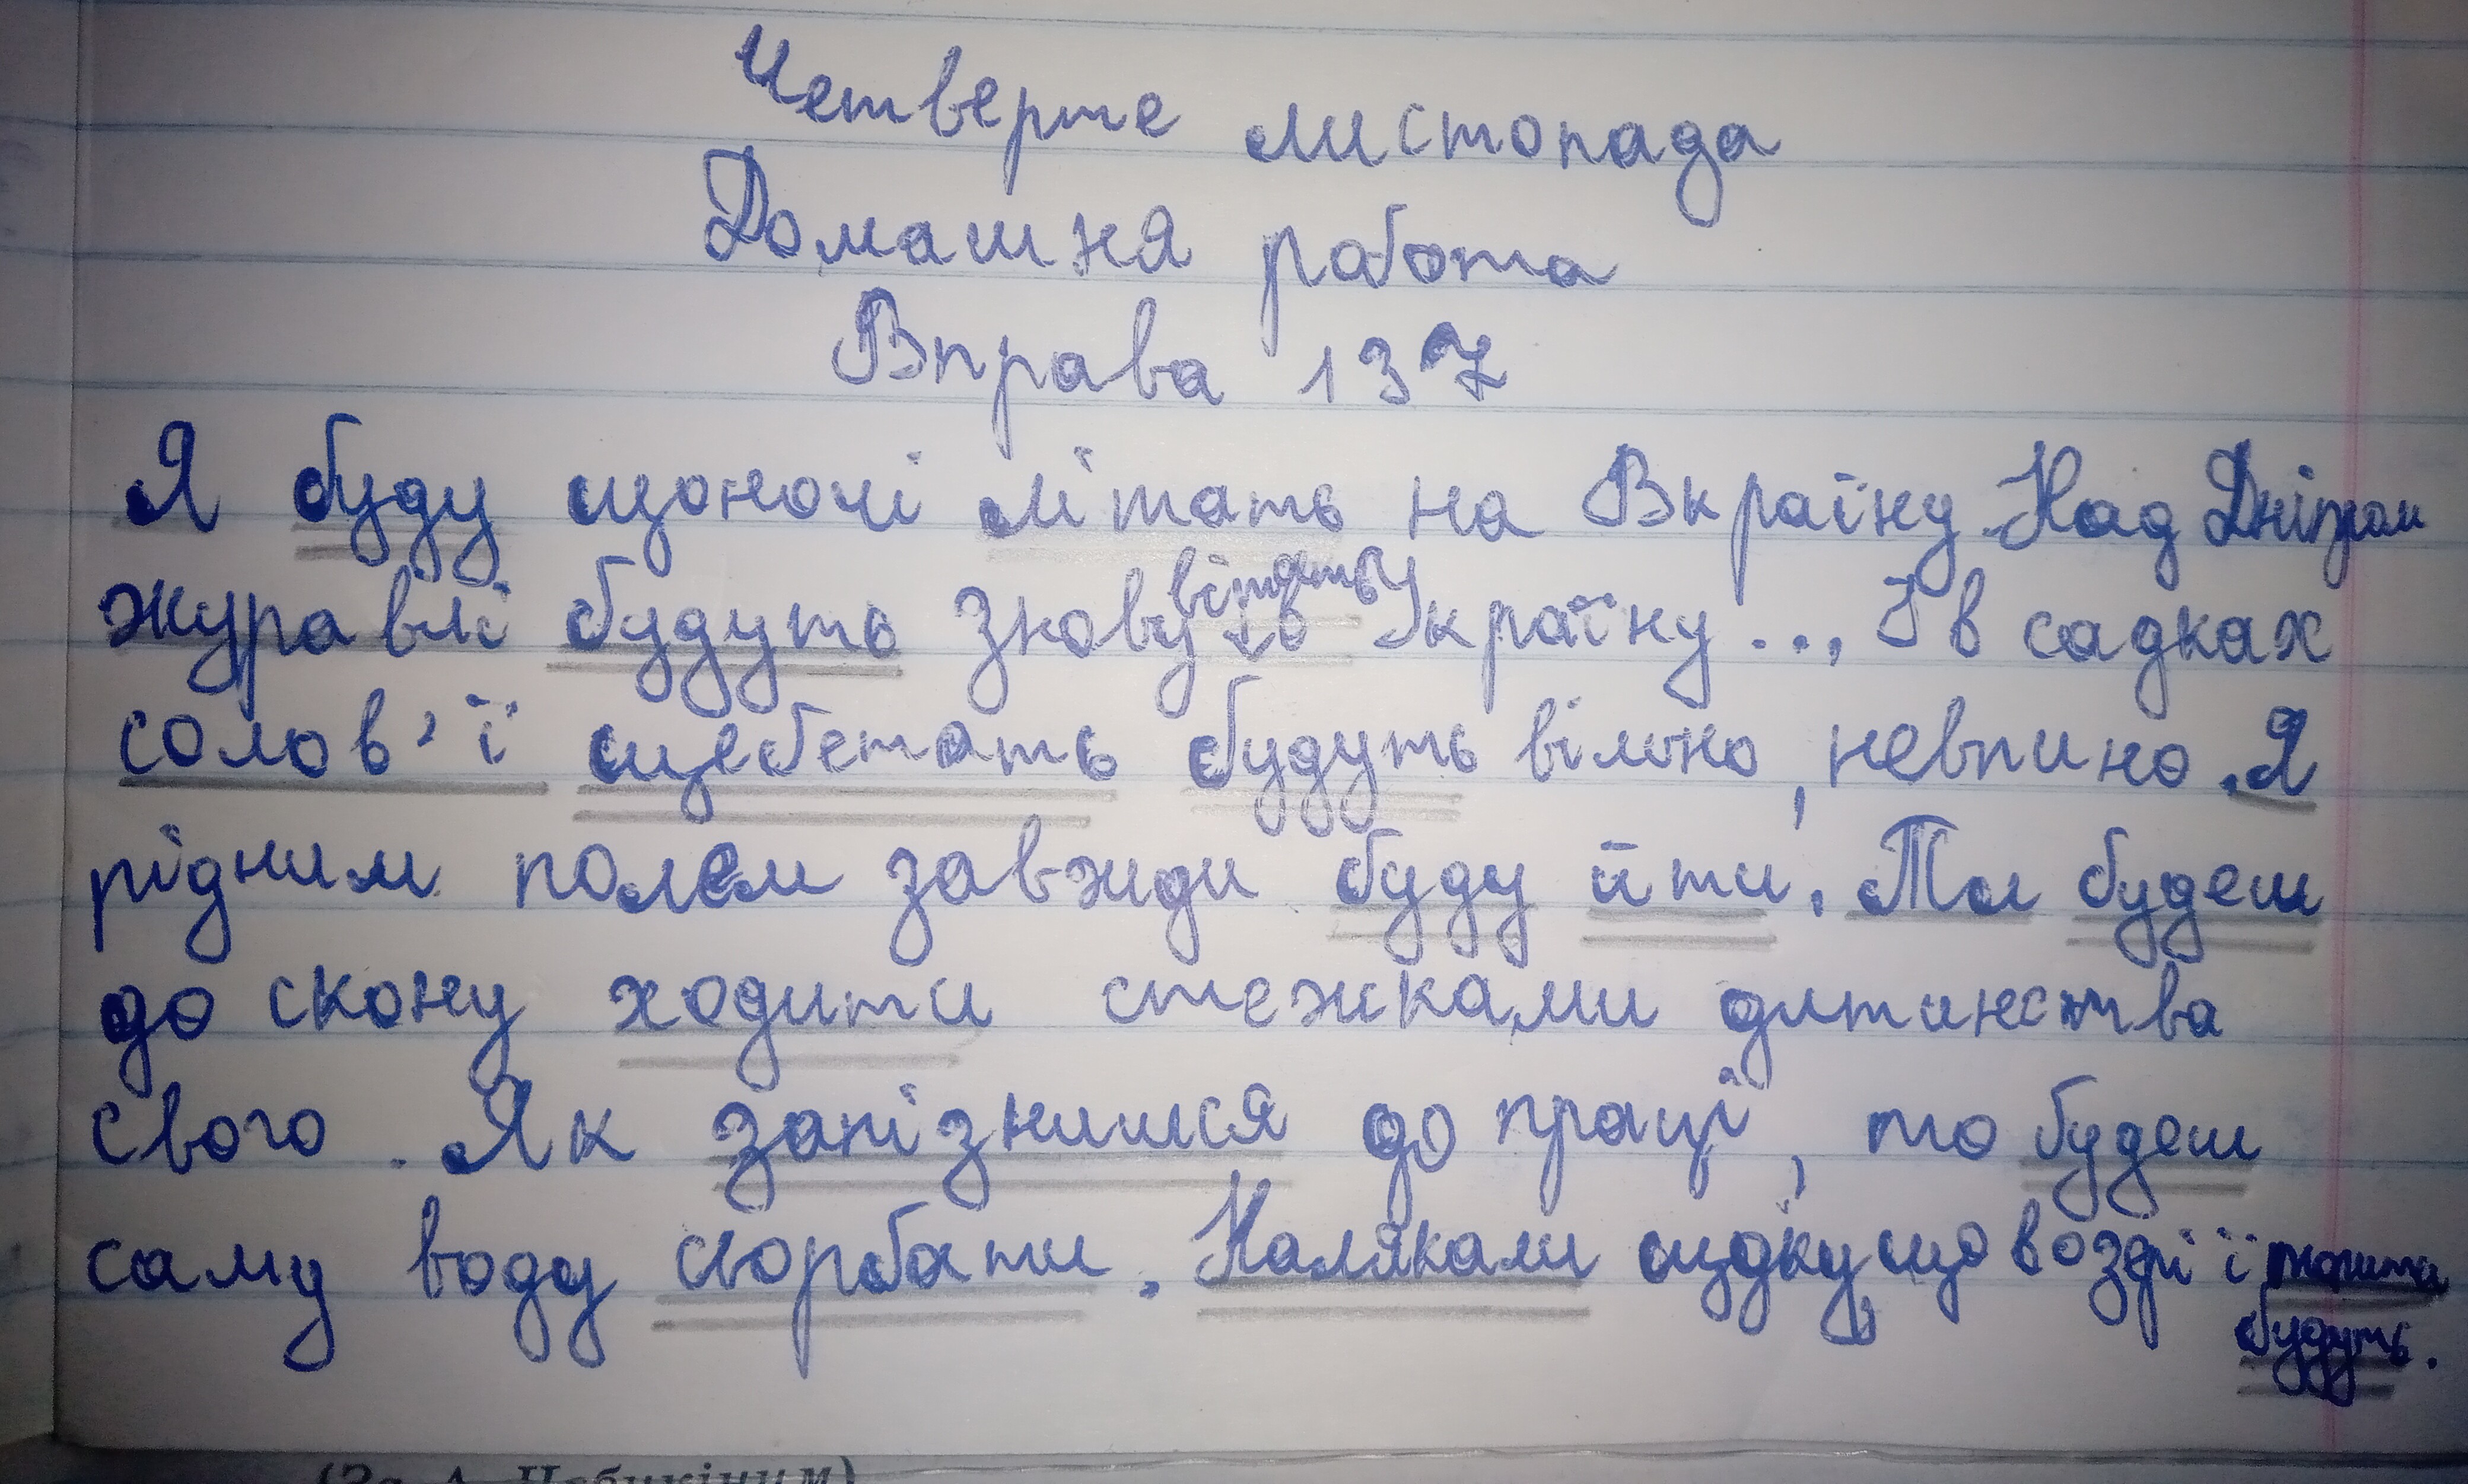 Четверте листопада
Домашня работа
Вправа 137
Я буду щоночі літать на Вкраїну. Над Дніпром
журавлі будуть знову вітать Україну... Й в садках
солов'ї щебетать будуть вільно, невпино. Я
рідним полем завжди буду йти. Ти будеш
до скону ходити стежками дитинства
свого. Як запізнишся до праці, то будеш
саму воду сьорбати. Налякали щуку, що в озері її топити
будуть.